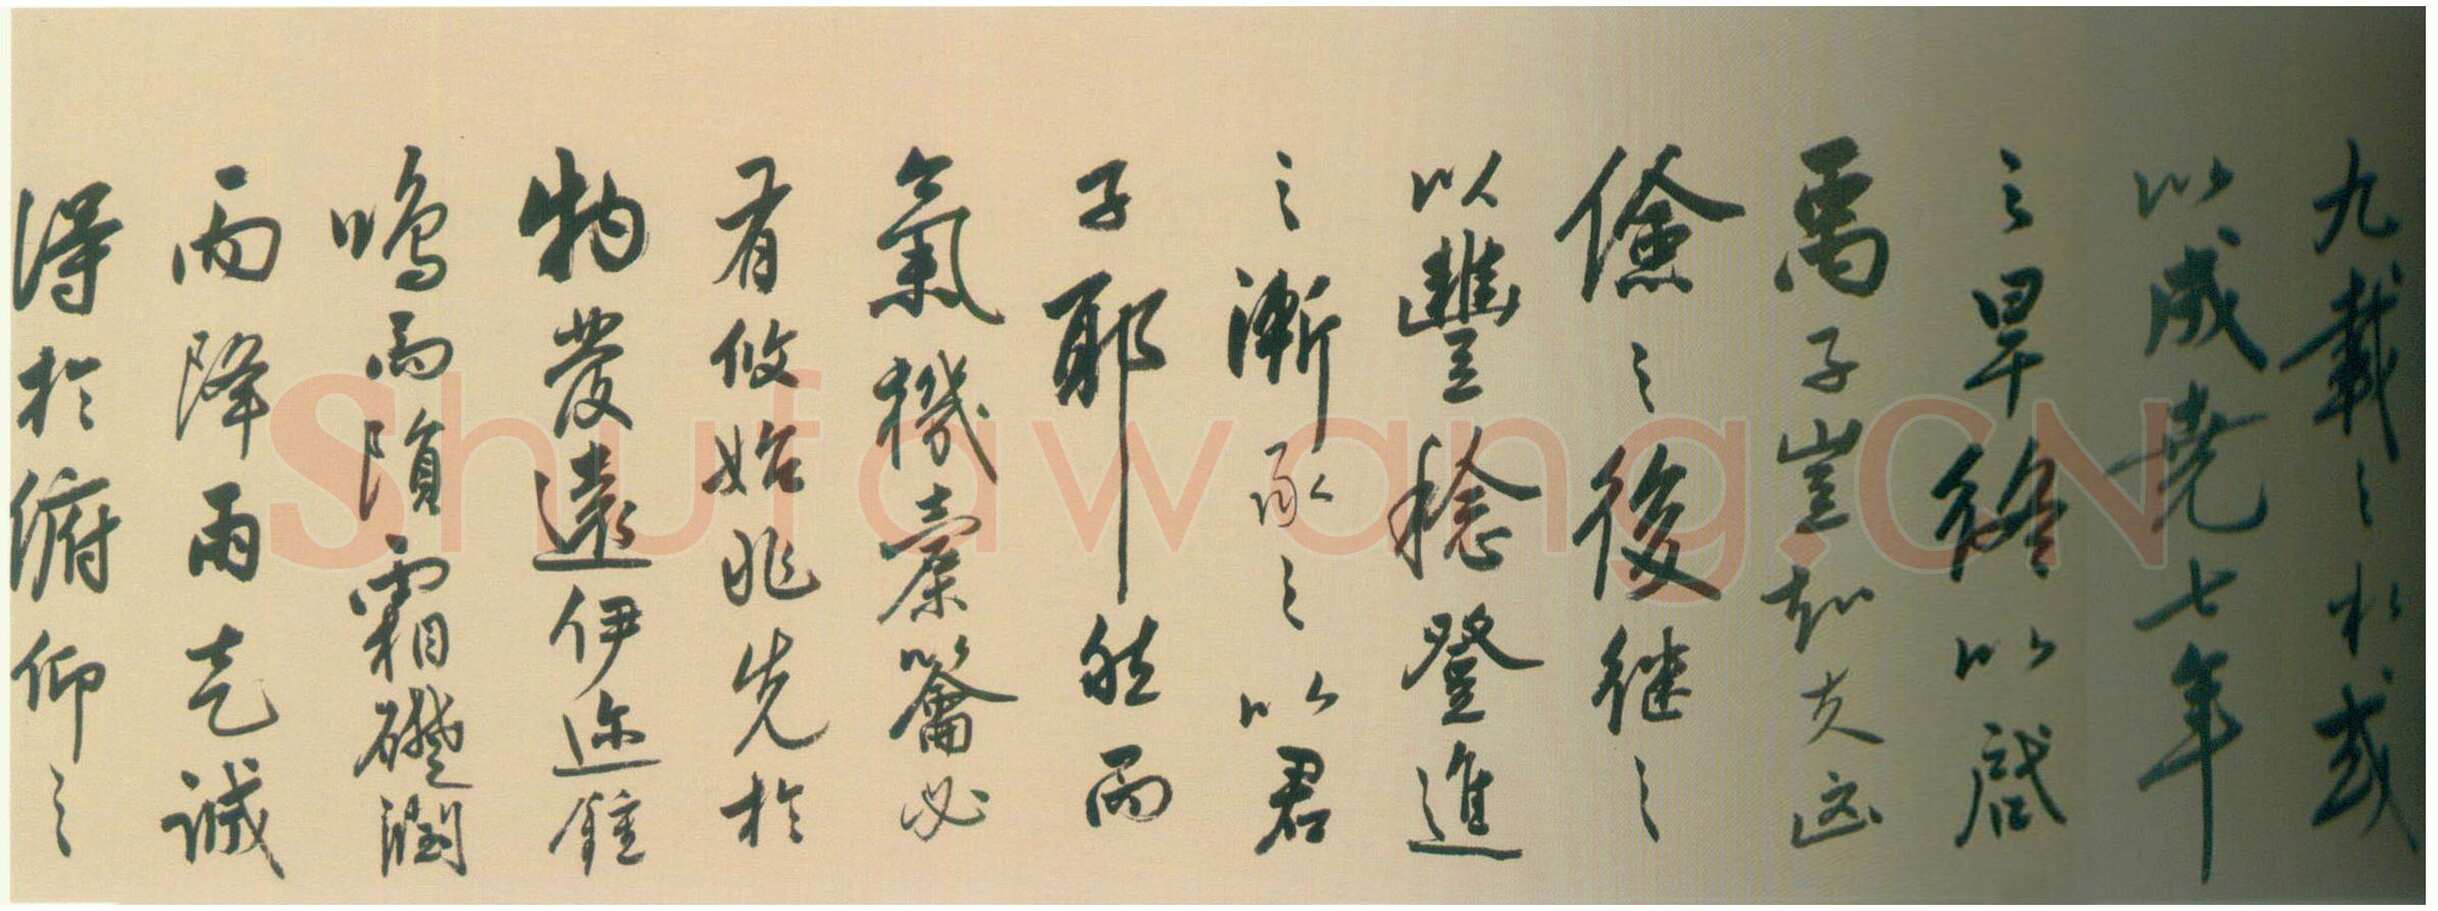 九載之水或
以成堯七年
之旱終以啟
禹子豈知夫凶
儉之後继之
以豐稔登進
之漸承之以君
子耶然而
氣機橐籥必
有攸始兆先於
物發遠伊迩鍾
鳴而隕霜礎潤
而降雨是誠
得於俯仰之
Shufawang.CN